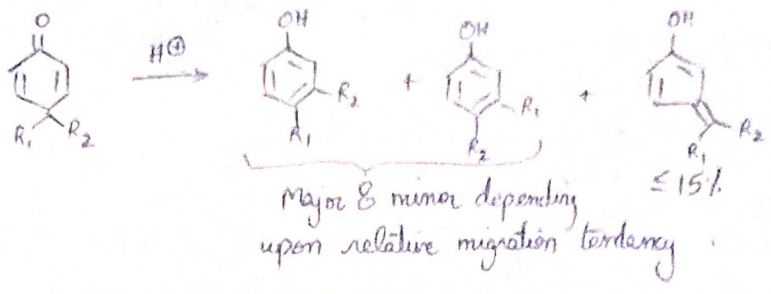 O
H⊕
OH
R₂
R₁
+
OH
R₁
R₂
+
OH
R₁
R₂
R₁
R₂
≤ 15%
Major & minor depending
upon relative migration tendancy.